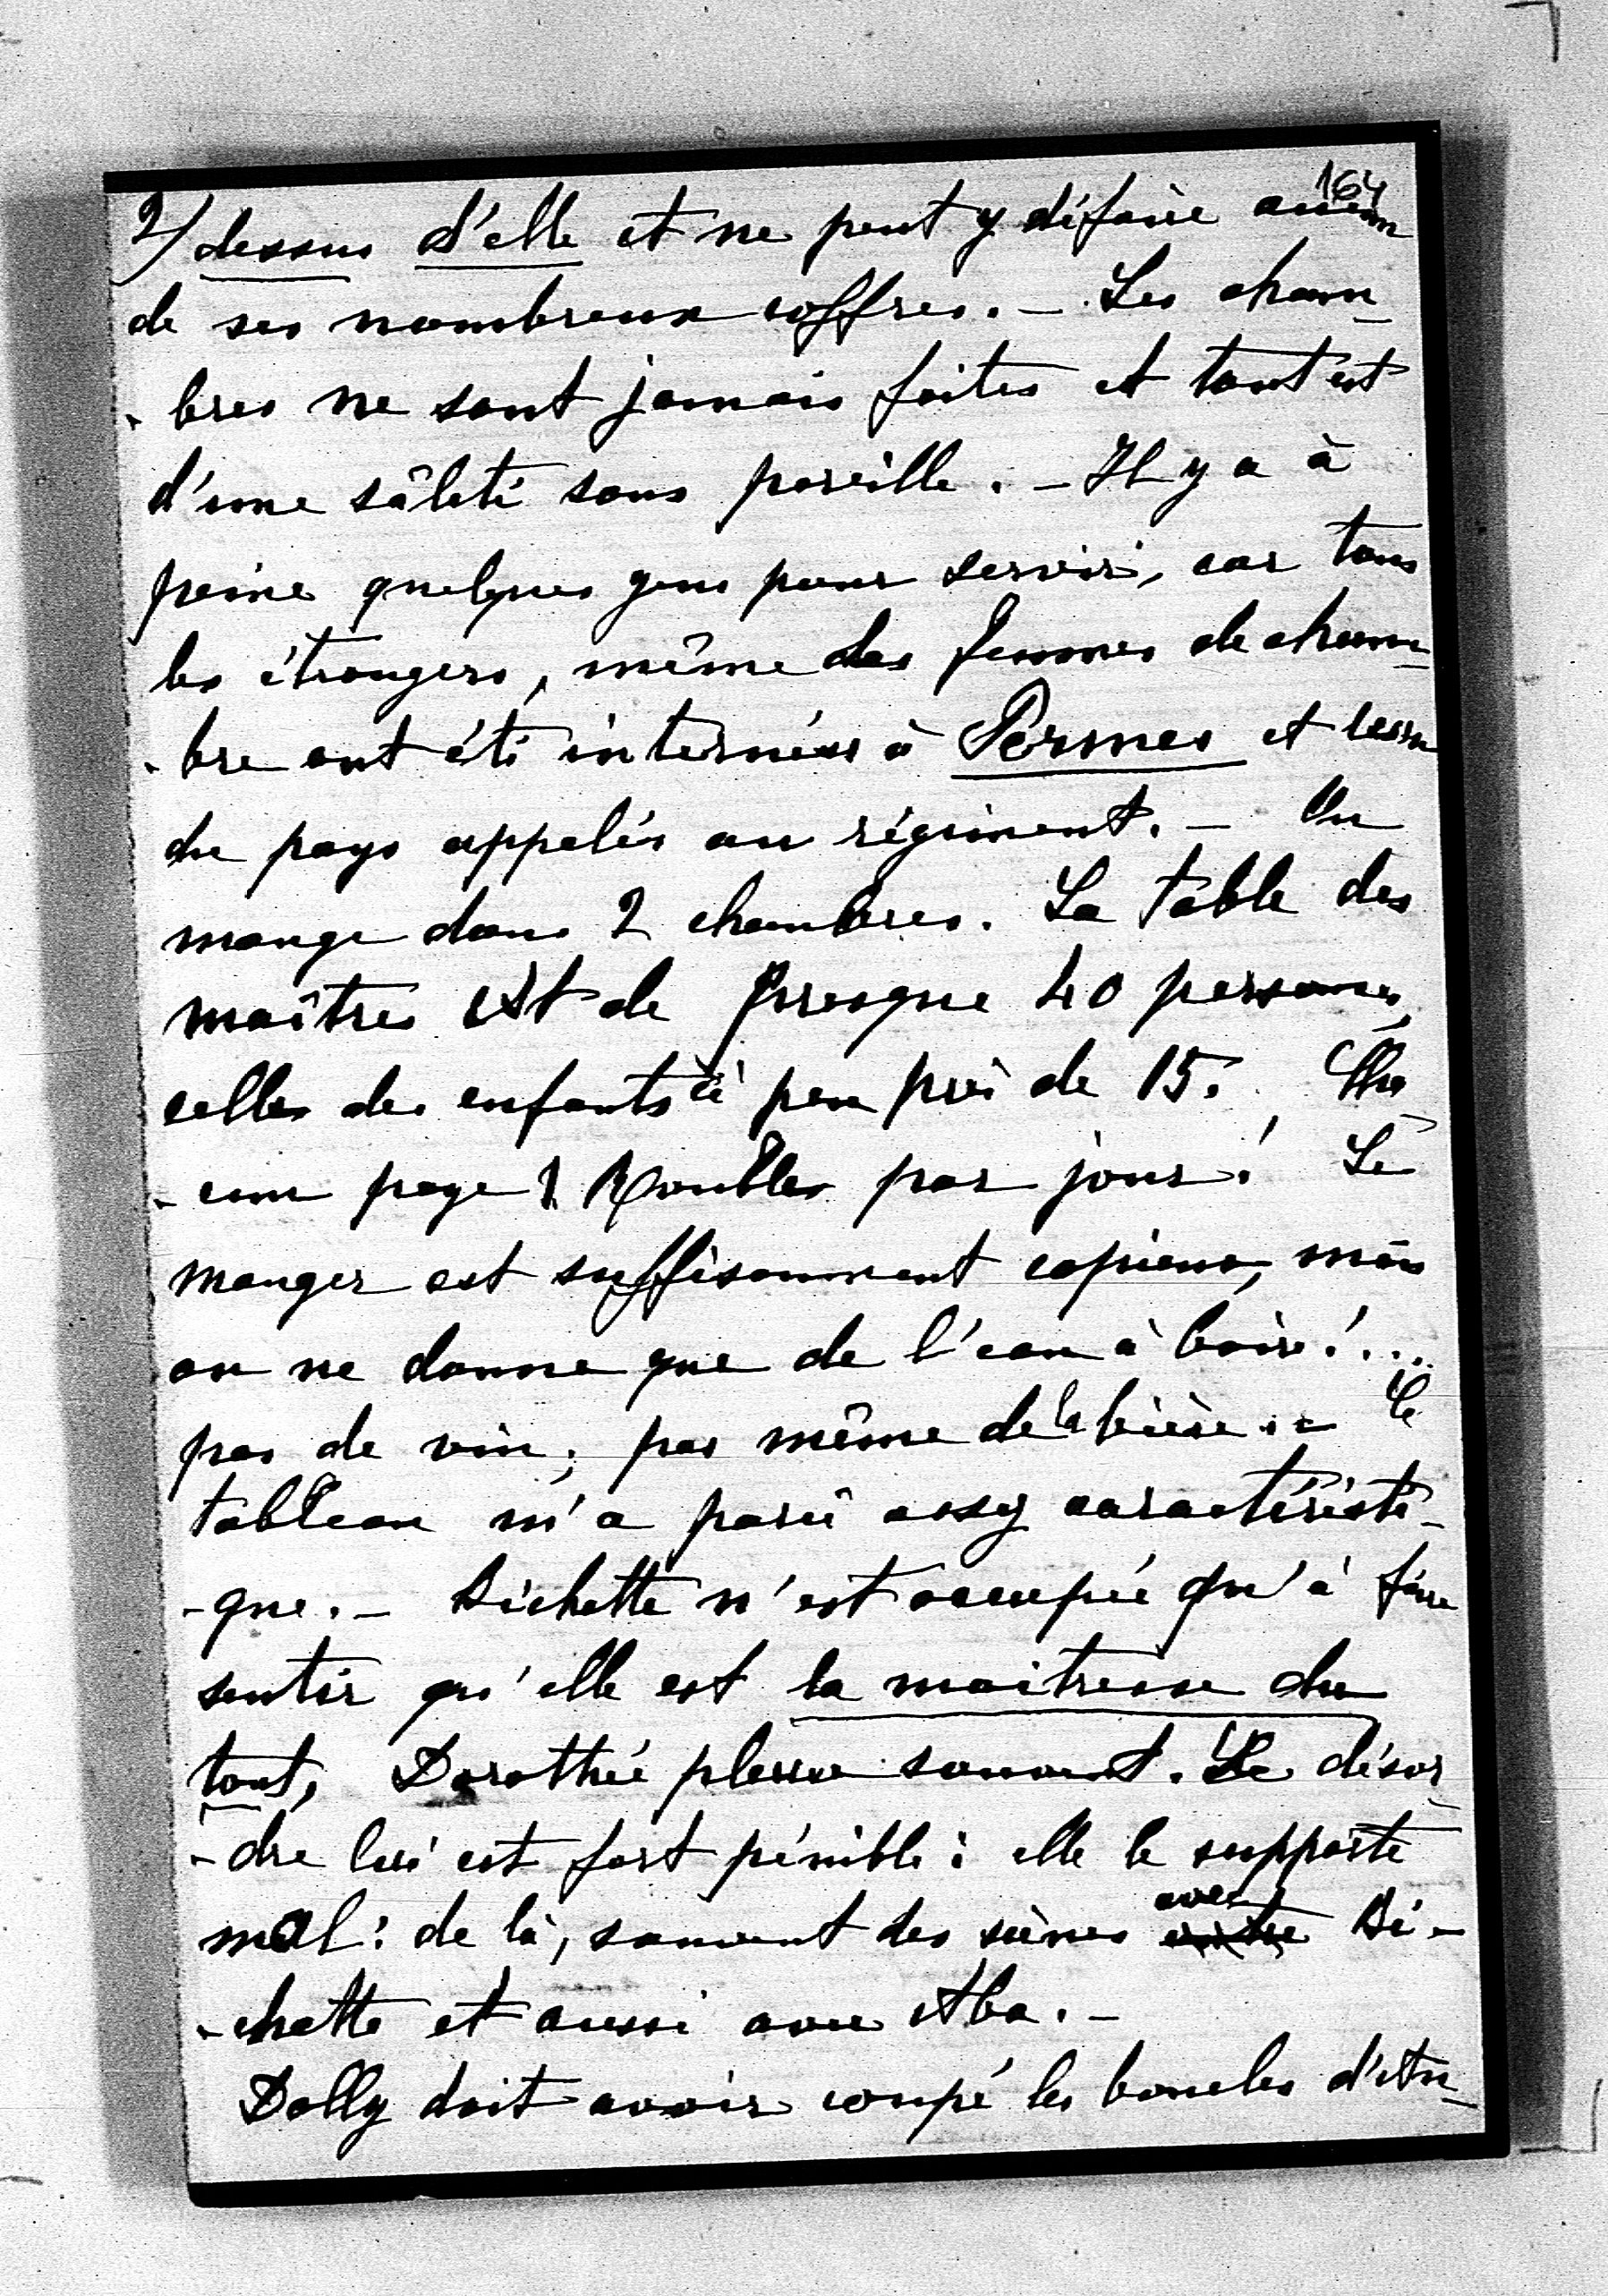 164
2/ dessus d'elle et ne peut y défaire aucun
de ses nombreux coffres. – Les cham-
- bres ne sont jamais faites et tout est
d'une sâleté sans pareille. – Il y a à
peine quelques gens pour servir, car tous
les étrangers, même des femmes de cham-
- bre ont été internées à Permes et ceux
du pays appelés au régiment. – On
mange dans 2 chambres. La table des
maîtres est de presque 40 personnes,
celles des enfants à peu près de 15. Cha
- cun paye Roubles par jour! Le
manger est suffisamment copieux, mais
on ne donne que de l'eau à boire!...
pas de vin, pas même de la bière. – Ce
tableau m'a parû assez caractéristi-
- que. – Bichette n'est occupée qu'à faire
sentir qu'elle est la maitresse du
tout, Dorothée pleure souvent. Le désor
- dre lui est fort pénible: elle le supporte
mal: de là, souvent des scènes avec Bi-
- chette et aussi avec Aba. –
Dolly doit avoir coupé les boucles d'An-